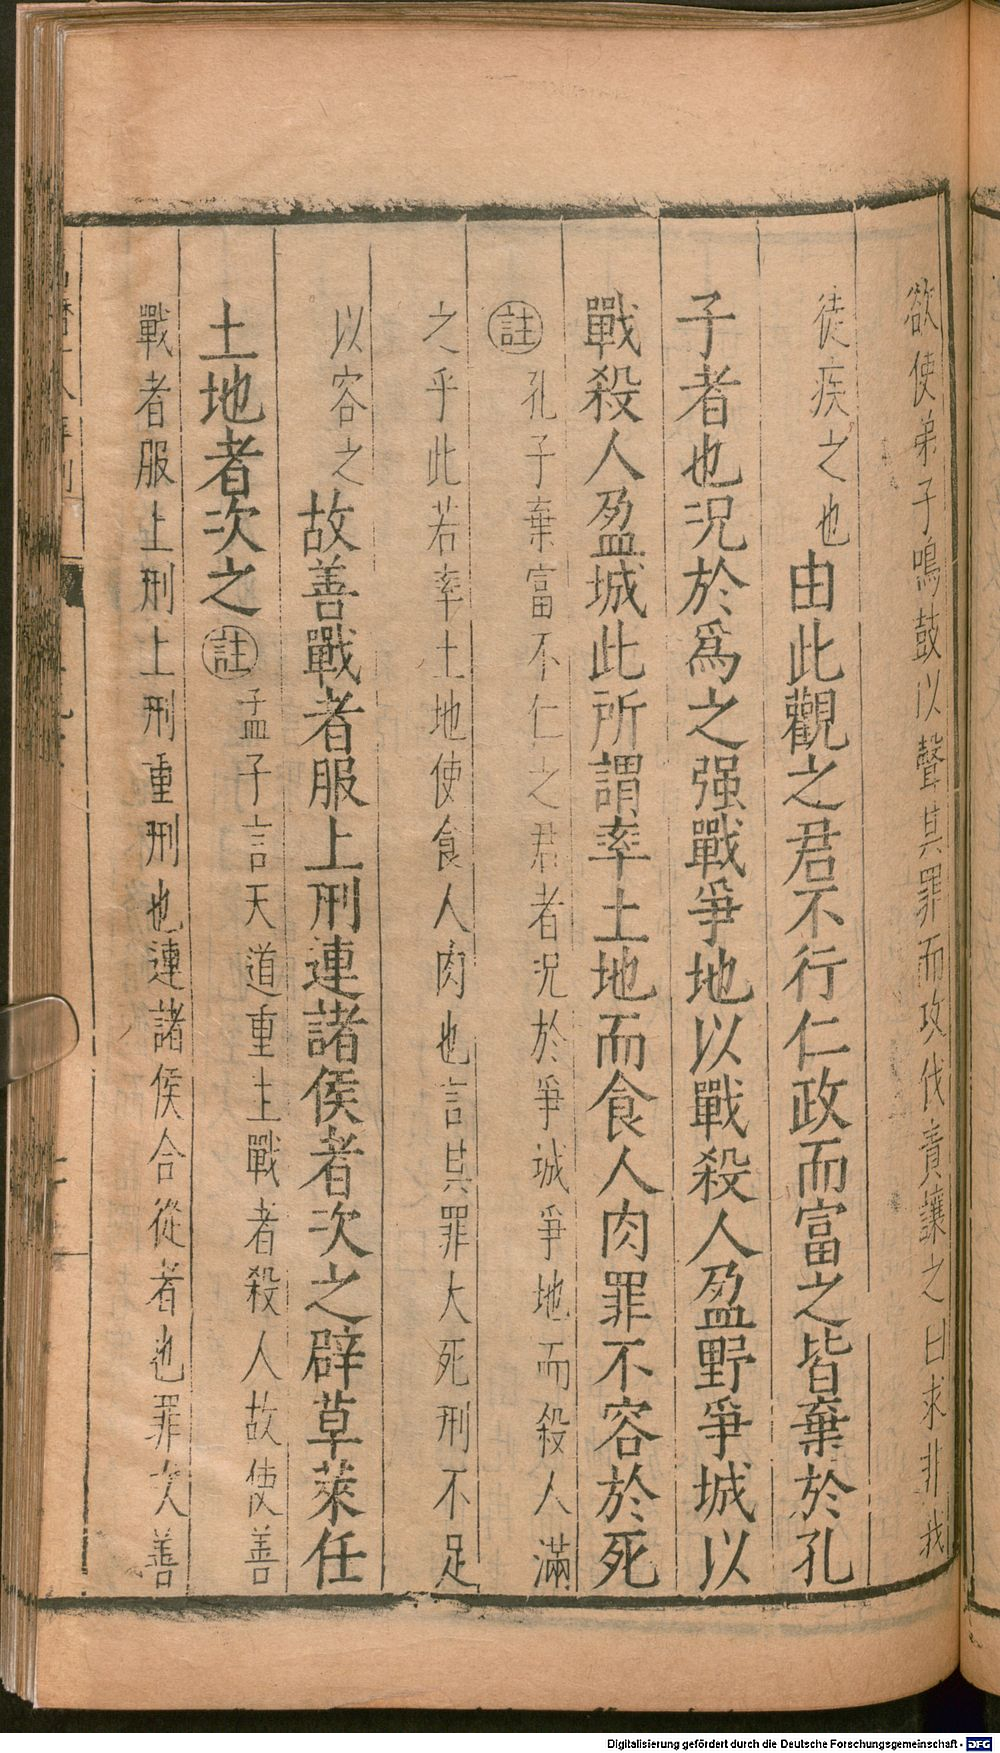 欲使弟子鳴鼓以聲其罪而攻伐責讓之曰求非我
徒疾之也由此觀之君不行仁政而富之皆棄於孔
子者也况於爲之强戰爭地以戰殺人盈野爭城以
戰殺人盈城此所謂率土地而食人肉罪不容於死
註孔子棄富不仁之君者况於爭城爭地而殺人滿
之乎此若率土地使食人肉也言其罪大死刑不足
以容之故善戰者服上刑連諸侯者次之辟草萊任
土地者次之註孟子言天道重生戰者殺人故使善
戰者服上刑上刑重刑也連諸侯合從者也罪次善
Digitalisierung gefördert durch die Deutsche Forschungsgemeinschaft - DFG